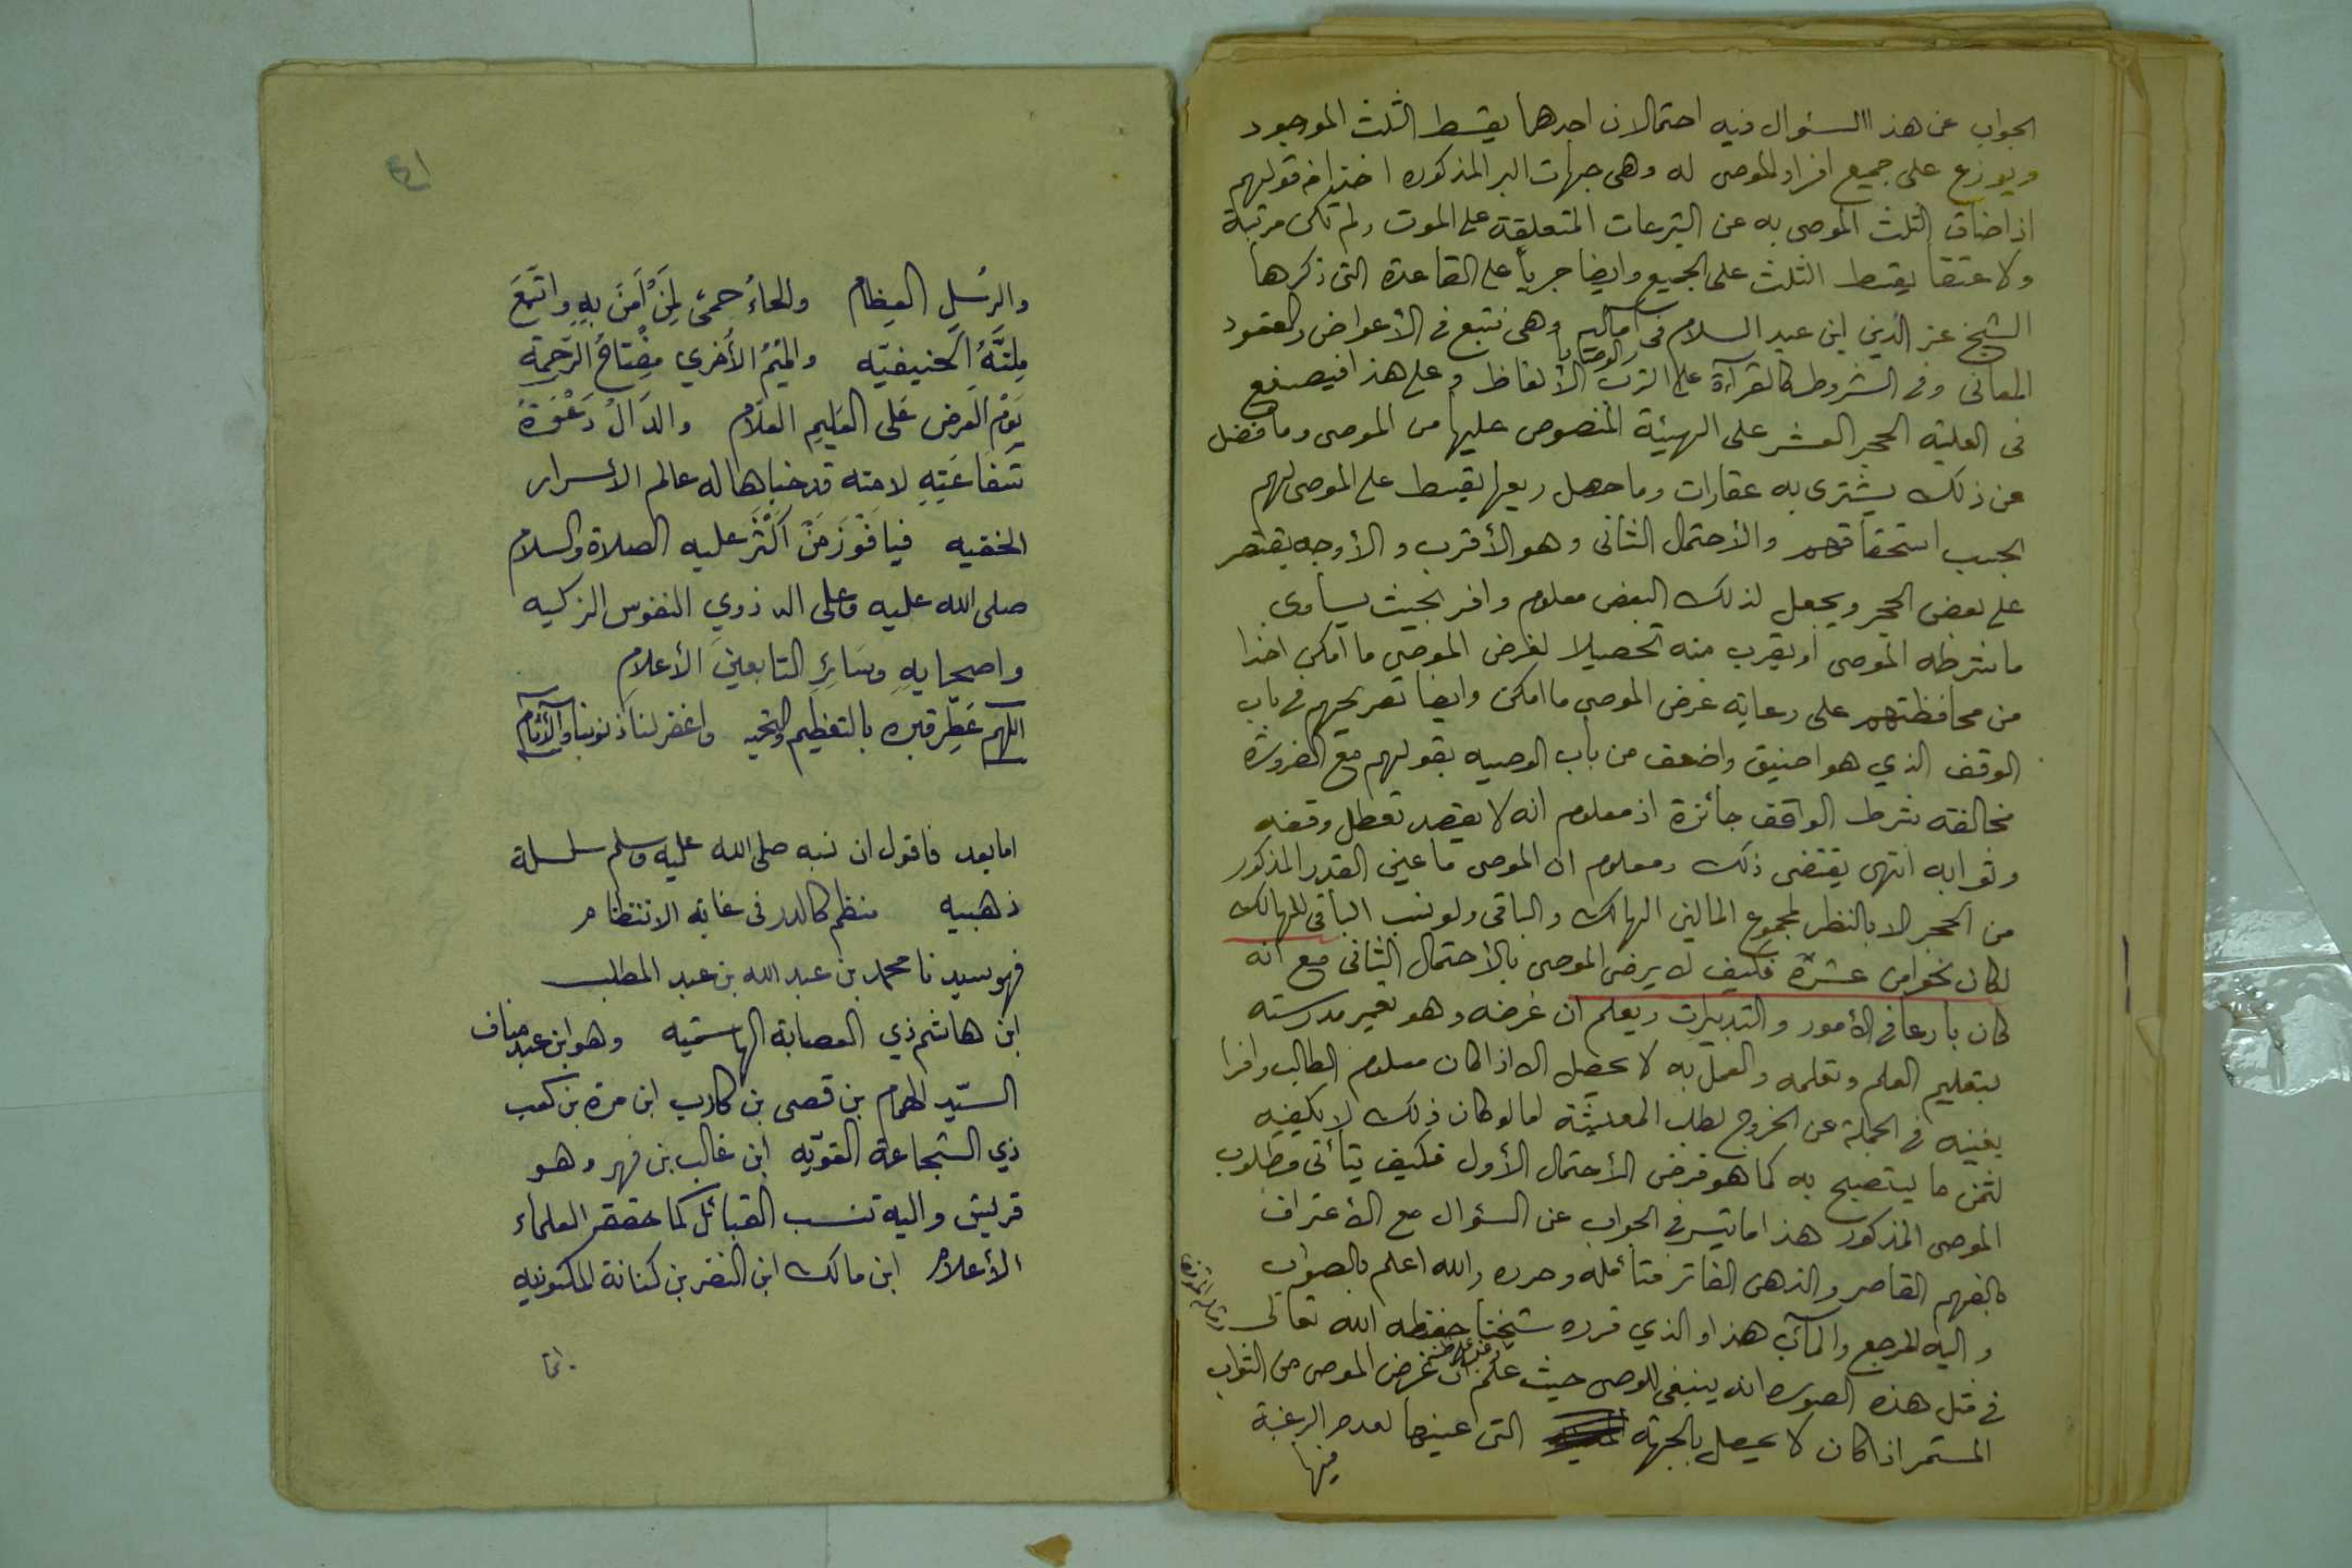 الجواب عن هذا السئوال فيه احتمالان احدهما يقسط الثلث الموجود
ويوزع على جميع افراد الموصى له وهى جهات البر المذكوره اخذا من قولهم
اذا ضاق الثلث الموصى به عن التبرعات المتعلقة على الموت ولم تكن مرتبة
ولا عتقا يقسط الثلث على الجميع وايضا جرياً على القاعدة التى ذكرها
الشيخ عز الدين ابن عبد السلام فى اماليه وهى نتبع فى الأعواض والعقود
المعانى وفى الشروط كالقرآءة على الترب والوصايا الألفاظ وعلى هذا فيصنع
فى العلية الحجر العشر على الهيئة المنصوص عليها من الموصى وما فضل
عن ذلك يشترى به عقارات وما حصل ريعها يقسط على الموصى لهم
بحسب استحقاقهم والأحتمال الثانى وهو الأقرب والأوجه يقتصر
على بعض الحجر ويجعل لذلك البعض معلوم وافر بحيث يساوى
ما شرطه الموصى او يقرب منه تحصيلا لغرض الموصى ما امكن اخذا
من محافظتهم على رعاية غرض الموصى ما امكن وايضا تصريحهم فى باب
الوقف الذي هو اضيق واضعف من باب الوصيه بقولهم مع الضرورة
مخالفة شرط الواقف جائزة اذ معلوم انه لا يقصد تعطل وقفه
وثوابه انتهى يقتضى ذلك ومعلوم ان الموصى ما عين القدر المذكور
من الحجر الا بالنظر لمجموع المالين الهالك والباقى ولو نسب الباقى للهالك
لكان نحوا من عشرة فكيف لا يرضى الموصى بالأحتمال الثانى مع انه
كان بارعا فى الأمور والتدبيرات ويعلم ان غرضه وهو تعمير مدرسته
بتعليم العلم وتعلمه والعمل به لا يحصل الا اذا كان معلوم الطالب وافرا
يغنيه فى الجملة عن الخروج لطلب المعيشة اما لو كان ذلك لا يكفيه
لثمن ما يستصبح به كما هو فرض الأحتمال الأول فكيف يتأتى مطلوب
الموصى المذكور هذا ما تيسر فى الجواب عن السئوال مع الأعتراف
بالفهم القاصر والذهن الفاتر فتأمله وحرره والله اعلم بالصواب
واليه المرجع والمآب هذا والذي قرره شيخنا حفظه الله تعالى
فى مثل هذه الصورة انه ينبغى للوصى حيث علم ان غرض الموصى من الثواب
المستمر اذا كان لا يحصل بالجهة التى عينها لعدم الرغبة
فيها
والرسُلِ العِظام والحاءُ حمىً لِمَنْ اَمَنَ بِهِ واتَّبَعَ
مِلتَهُ الحنيفيّه والميمُ الأُخري مِفْتاحُ الرّحمة
يَوْم العَرض عَلى العَليمِ العلّام والدّالُ دَعْوَةُ
شَفاعَتِهِ لامته قد خباها له عالم الأسرار
الخفيه فيا فَوْزَ مَنْ اَكْثَرَ عليه الصلاة والسلام
صلى الله عليه وعلى اله ذوي النفوس الزكيه
واصحابهِ وسَائِرِ التابعينَ الأعلامِ
اللهم عَطِّر قبره بالتعظيم والتحيه واغفر لنا ذنوبنا والآثام
اما بعد فاقول ان نسبه صلى الله عليه وسلم سلسلة
ذهبيه منظم كالدر فى غاية الانتظام
فهو سيدنا محمد بن عبد الله بن عبد المطلب
ابن هاشم ذي العصابة الهاشميه وهو ابن عبد مناف
السيّد الهمام بن قصى بن كلاب ابن مرة بن كعب
ذي الشجاعة القويّه ابن غالب بن فهر وهو
قريش واليه تنسب القبائل كما حققه العلماء
الأعلام ابن مالك ابن النضر بن كنانة المكنونيه